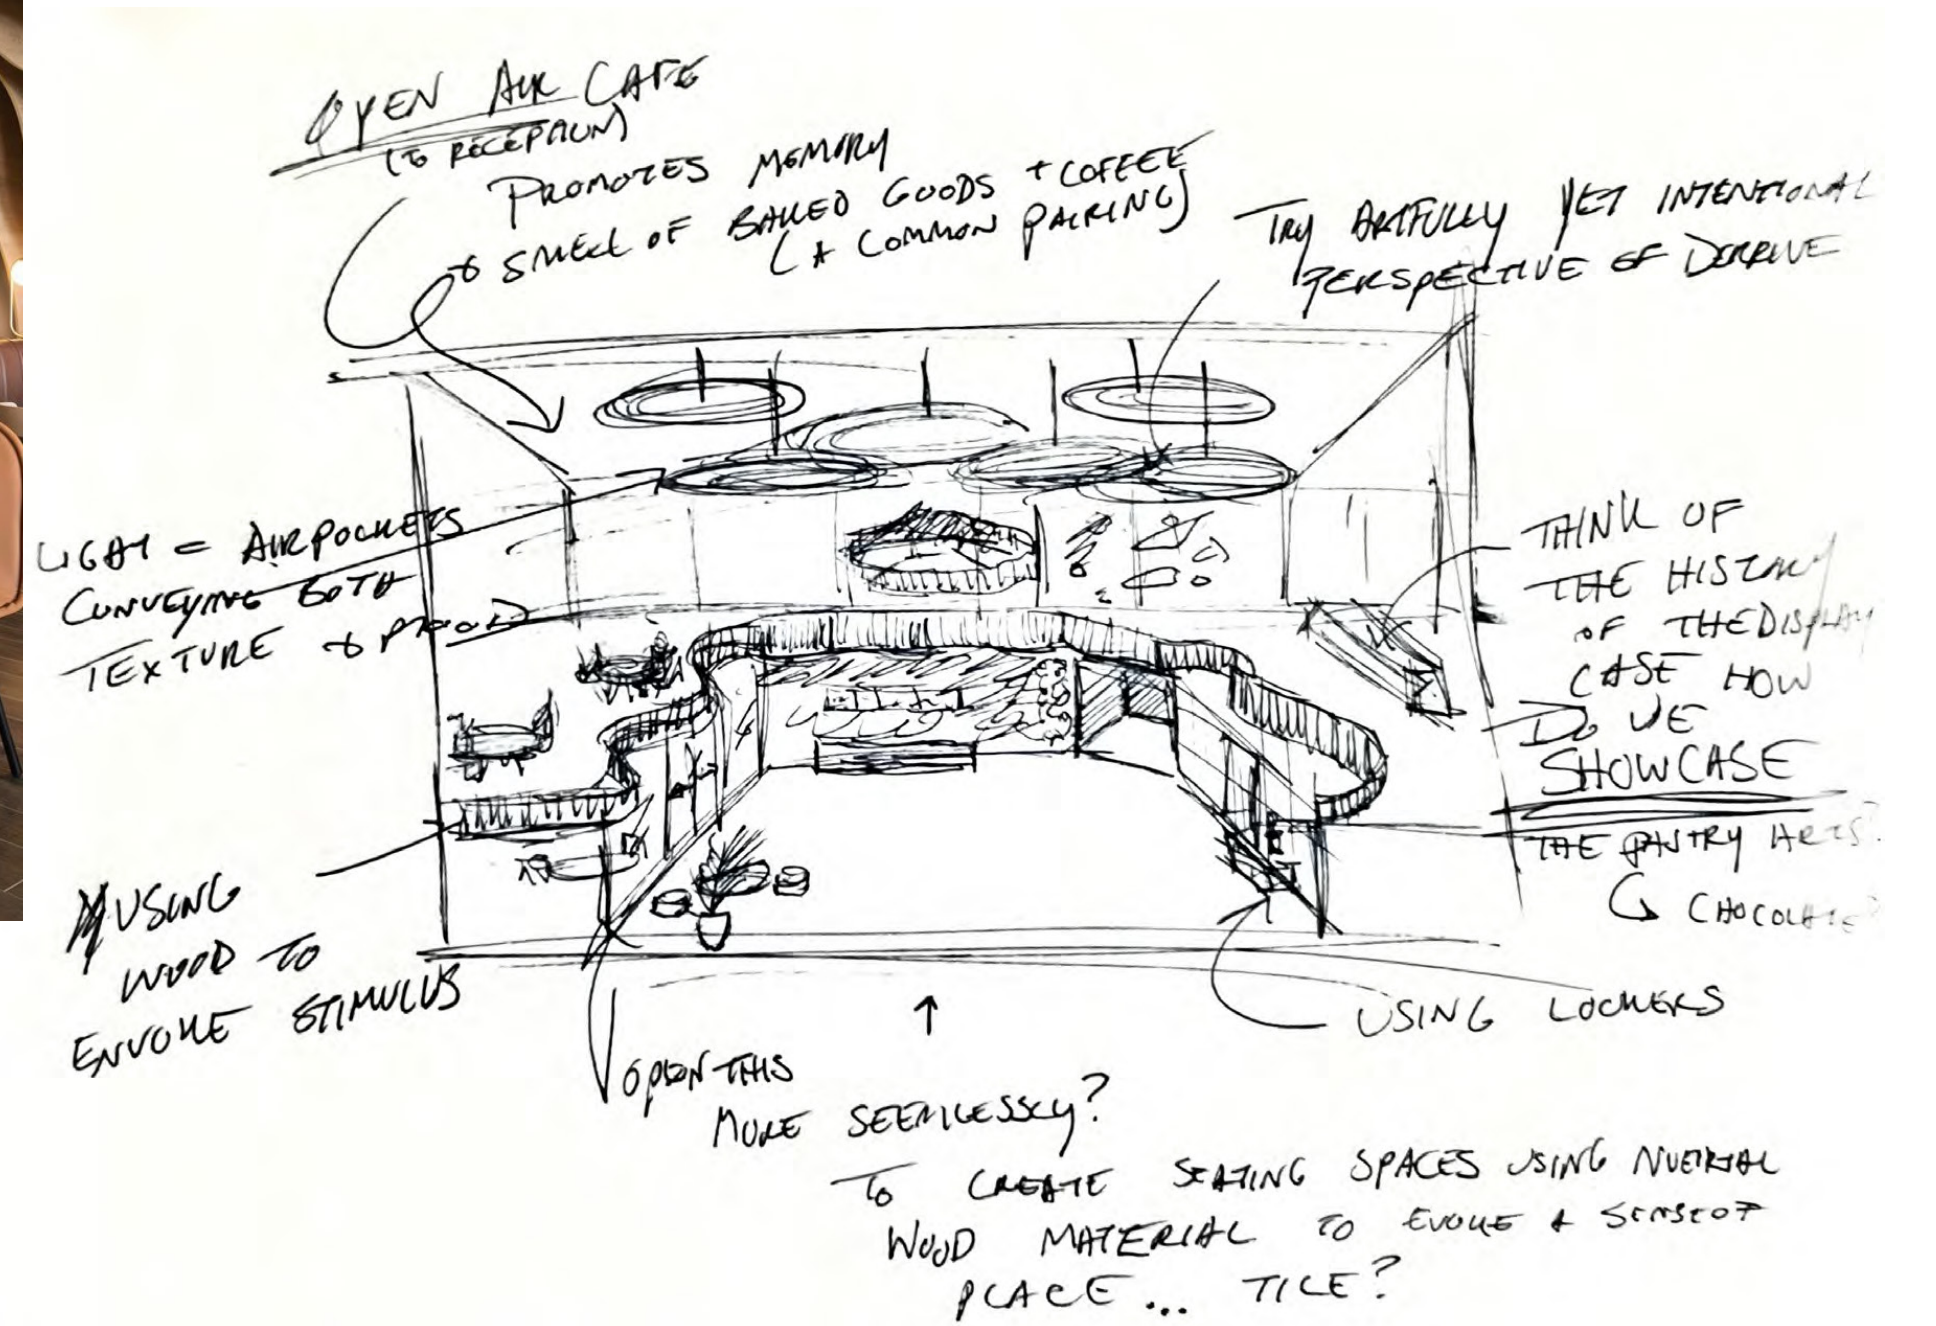 OPEN AIR CAFE
(TO RECEPTION)
PROMOTES MEMORY
SMELL OF BAKED GOODS + COFFEE
(A COMMON PAIRING)
TRY ARTFULLY YET INTENTIONAL
PERSPECTIVE OF
LIGHT = AIR POCKETS
CONVEYING BOTH
TEXTURE &
THINK OF
THE HISTORY
OF THE DISPLAY
CASE HOW
DO WE
SHOWCASE
THE PANTRY ARTS?
CHOCOLATE?
USING
WOOD TO
ENVOKE STIMULUS
OPEN THIS
MORE SEEMLESSLY?
USING LOCKERS
TO CREATE SEATING SPACES USING
WOOD MATERIAL TO EVOKE A SENSE OF
PLACE... TILE?